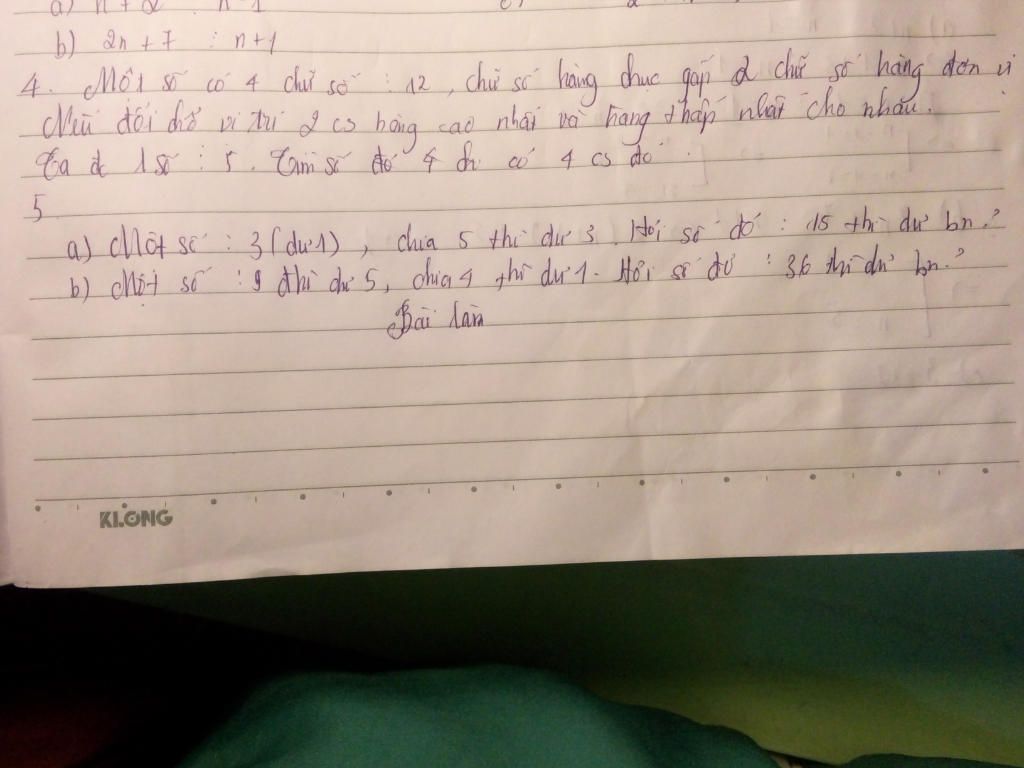 a) n + 2 n - 1
b) 2n + 7 ⋮ n + 1
4. Một số có 4 chữ số ⋮ 12, chữ số hàng chục gấp 2 chữ số hàng đơn vị
Nếu đổi chỗ vị trí 2 cs hàng cao nhất và hàng thấp nhất cho nhau.
Ta đc 1 số ⋮ 5. Tìm số đó có 4 cs đó
5
a) Một số : 3 (dư 1), chia 5 thì dư 3. Hỏi số đó : 15 thì dư bn?
b) Một số : 9 thì dư 5, chia 4 thì dư 1. Hỏi số đó : 36 thì dư bn?
Bài làm
KLONG